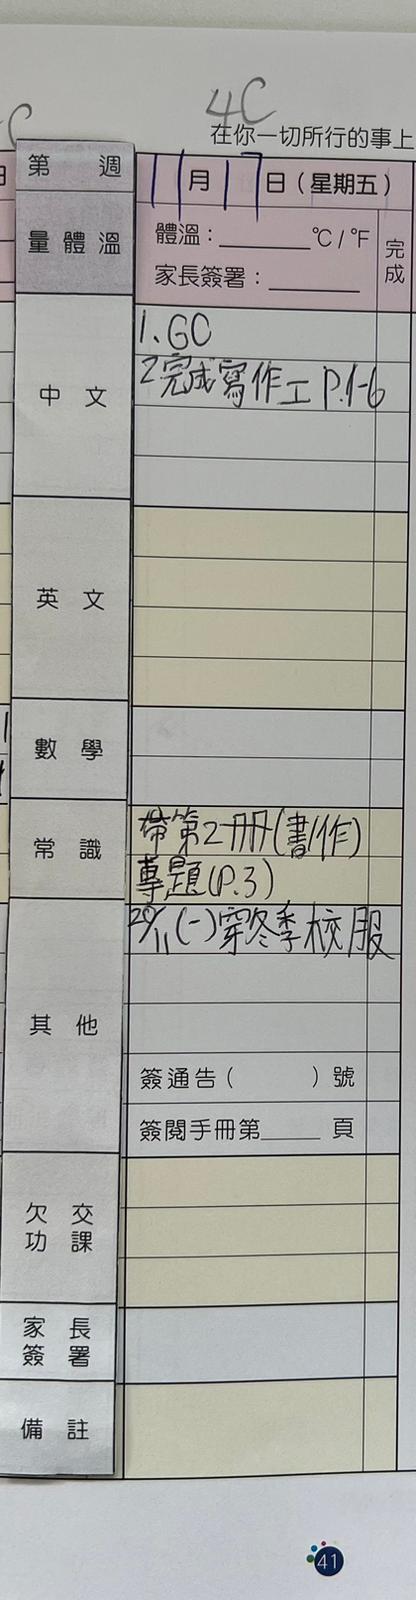 4C
在你一切所行的事上
第 週
11月17日(星期五)
量體溫
體溫：______℃/℉
家長簽署：______
完成
中文
1. GC
2完成寫作工 P.1-6
英文
數學
常識
帶第2冊(書/作)
專題(P.3)
其他
20/11(一)穿冬季校服
簽通告( )號
簽閱手冊第____頁
欠交
功課
家長
簽署
備註
41